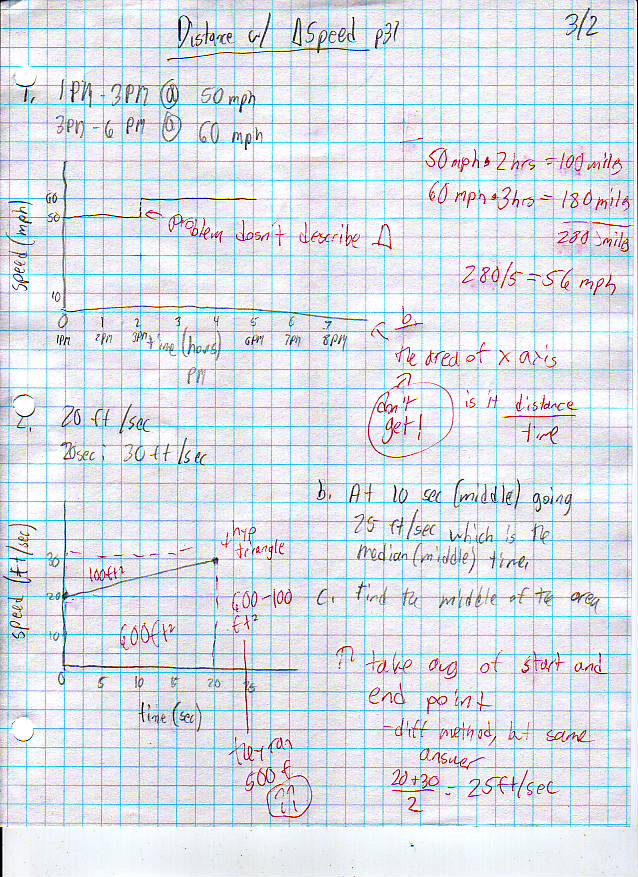 Distance w/ ΔSpeed p37
3/2
1. 1PM - 3PM @ 50 mph
3PM - 6 PM @ 60 mph
50mph • 2 hrs = 100 miles
60 mph • 3hrs = 180 miles
280 miles
280/5 = 56 mph
speed (mph)
60
50
10
← Problem doesn't describe Δ
0 1 2 3 4 5 6 7
1PM 2PM 3PM 6PM 7PM 8PM
time (hours)
PM
b.
the area of x axis
don't
get!
is it distance
time
2. 20 ft/sec
20sec: 30 ft/sec
speed (ft/sec)
30
20
10
100ft²
600ft²
hyp
triangle
600-100
ft²
0 5 10 15 20 25
time (sec)
they ran
500 f
??
b. At 10 sec (middle) going
25 ft/sec which is the
median (middle) time.
c. find the middle of the area
↑ take avg of start and
end point
- diff method, but same
answer
20+30
2
= 25ft/sec